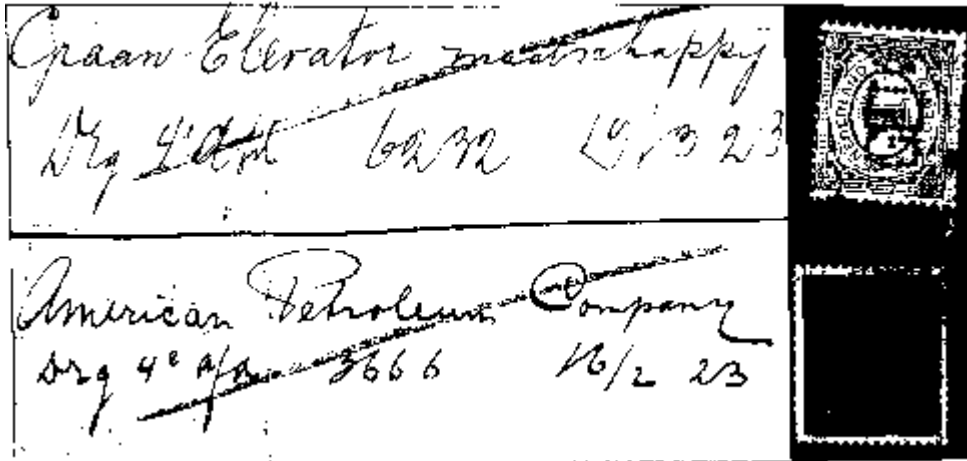 Graan Elevator maatschappij
Drg 4e 6232 23
American Petroleum Company
Drg 4e a/d 3666 16/2 23